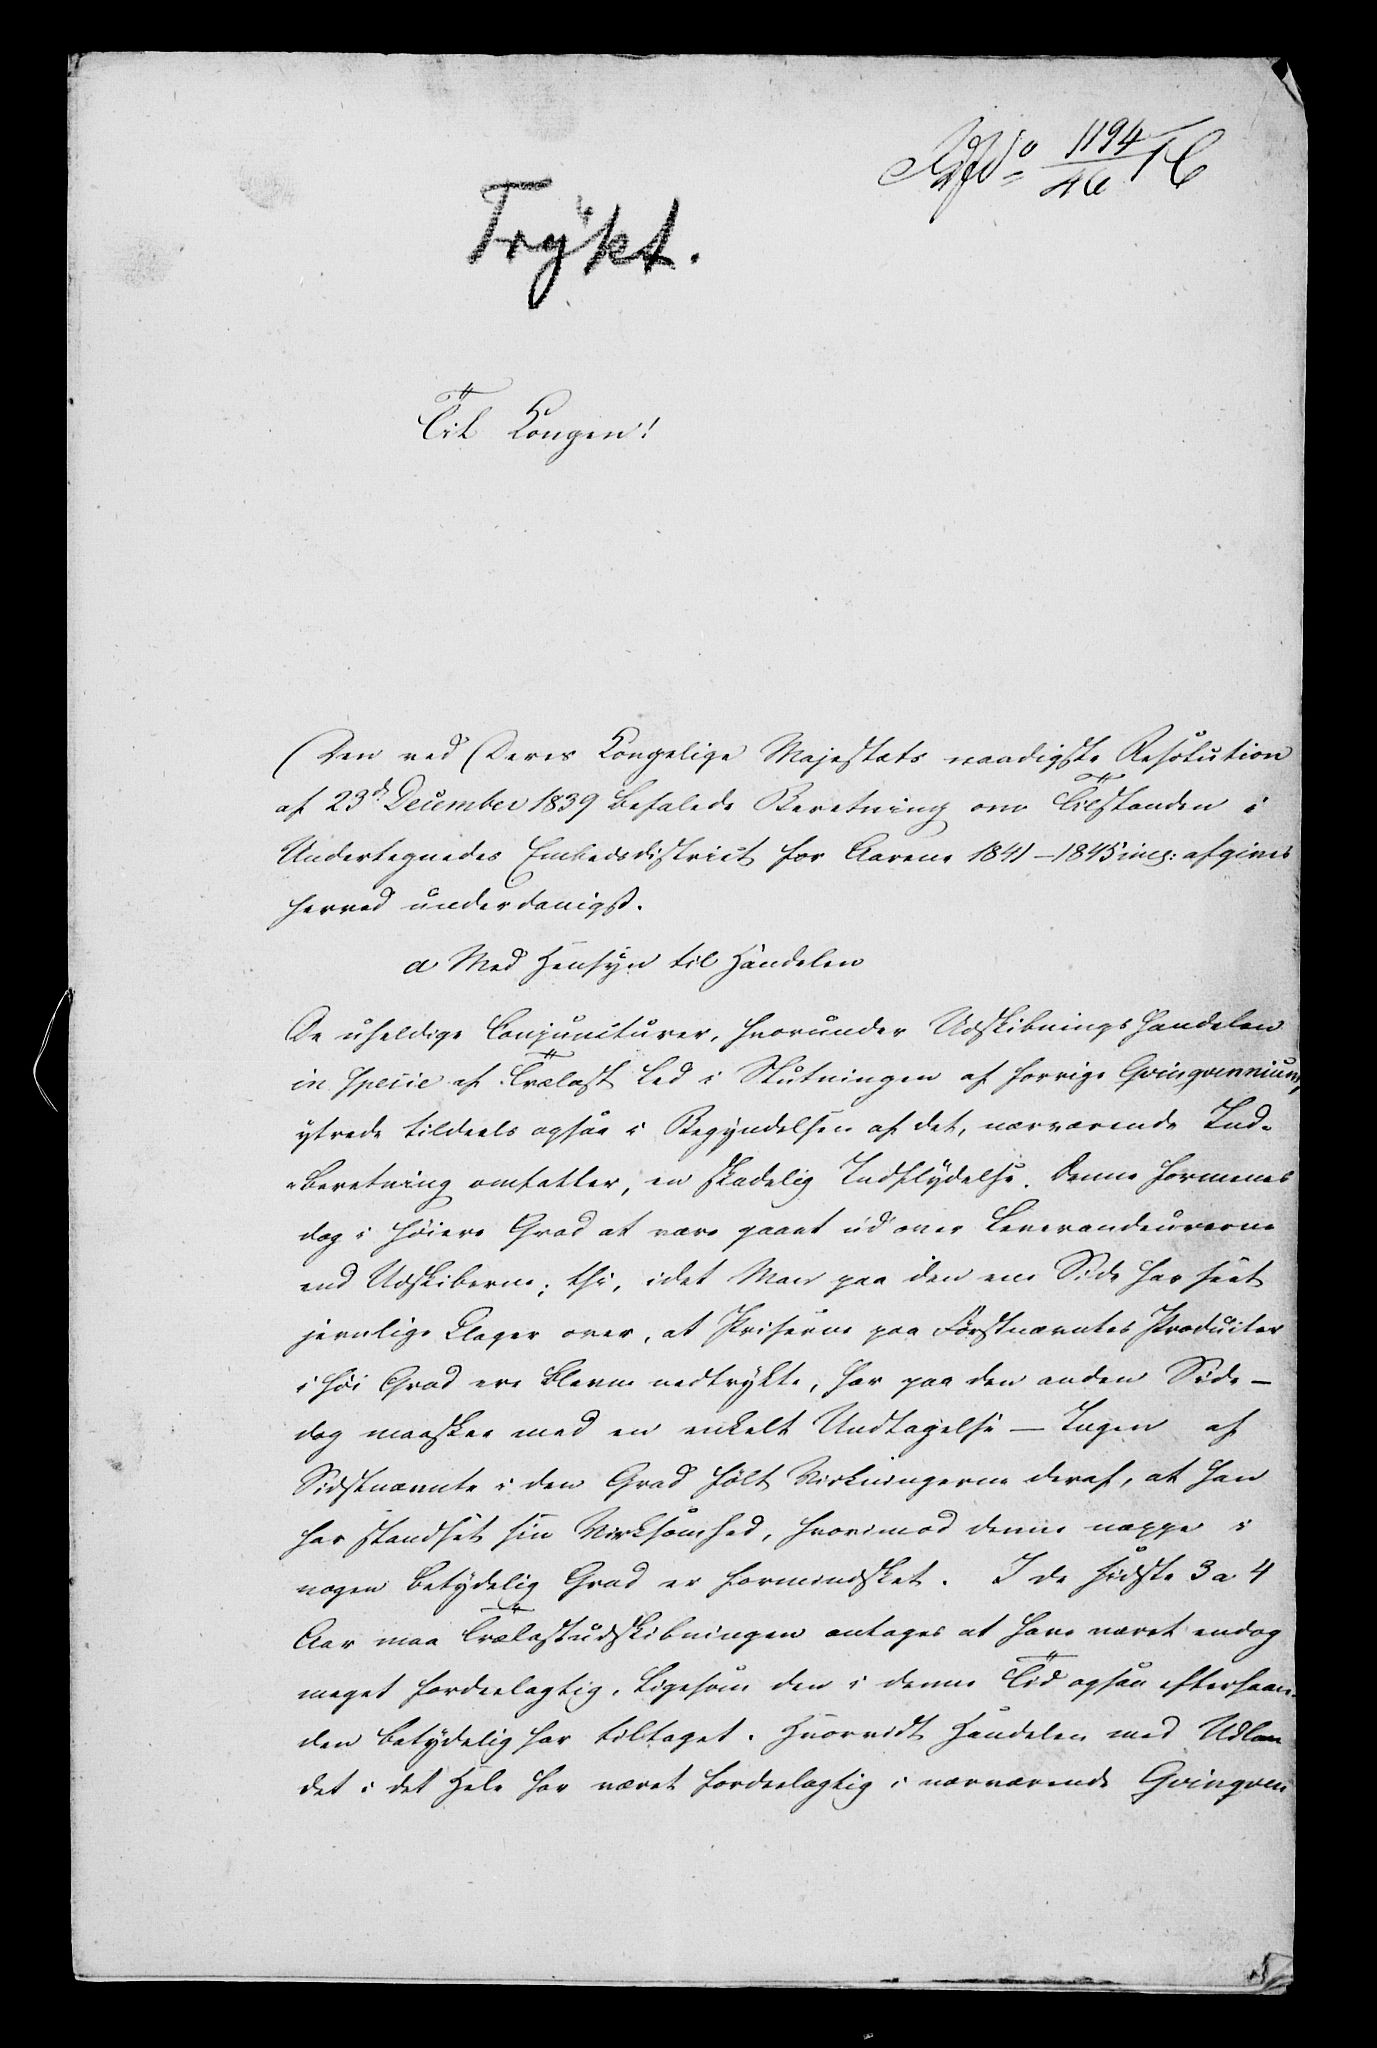 1194
46
Trykt.
Til Kongen!
Den ved Deres Kongelige Majestæts naadigste Resolution
af 23d December 1839 befalede Beretning om Tilstanden i
Undertegnedes Embedsdistrict for Aarene 1841–1845 incl: afgives
herved underdanigst.
a Med Hensyn til Handelen
De uheldige Conjuncturer, hvorunder Udskibningshandelen
in specie af Trælast led i Slutningen af forrige Qvinqvennium,
ytrede tildeels ogsaa i Begyndelsen af det, nærværende Ind-
-beretning omfatter, en skadelig Indflydelse. Denne formenes
dog i høiere Grad at være gaaet ud over Leverandeurerne
end Udskiberne; thi, idet Man paa den ene Side har hørt
jevnlige Klager over, at Priserne paa Førstnævntes Producter
i høi Grad ere blevne nedtrykte, har paa den anden Side –
dog maaskee med en enkelt Undtagelse – Ingen af
Sidstnævnte i den Grad følt Virkningerne deraf, at han
har standset sin Virksomhed, hvorimod denne neppe i
nogen betydelig Grad er formindsket. I de sidste 3 a 4
Aar maa Trælastudskibningen antages at have været endog
meget fordeelagtig, ligesom den i denne Tid ogsaa efterhaan-
den betydelig har tiltaget. Hvorvidt Handelen med Udlan
det i det Hele har været fordeelagtig i nærværende Qvinqven